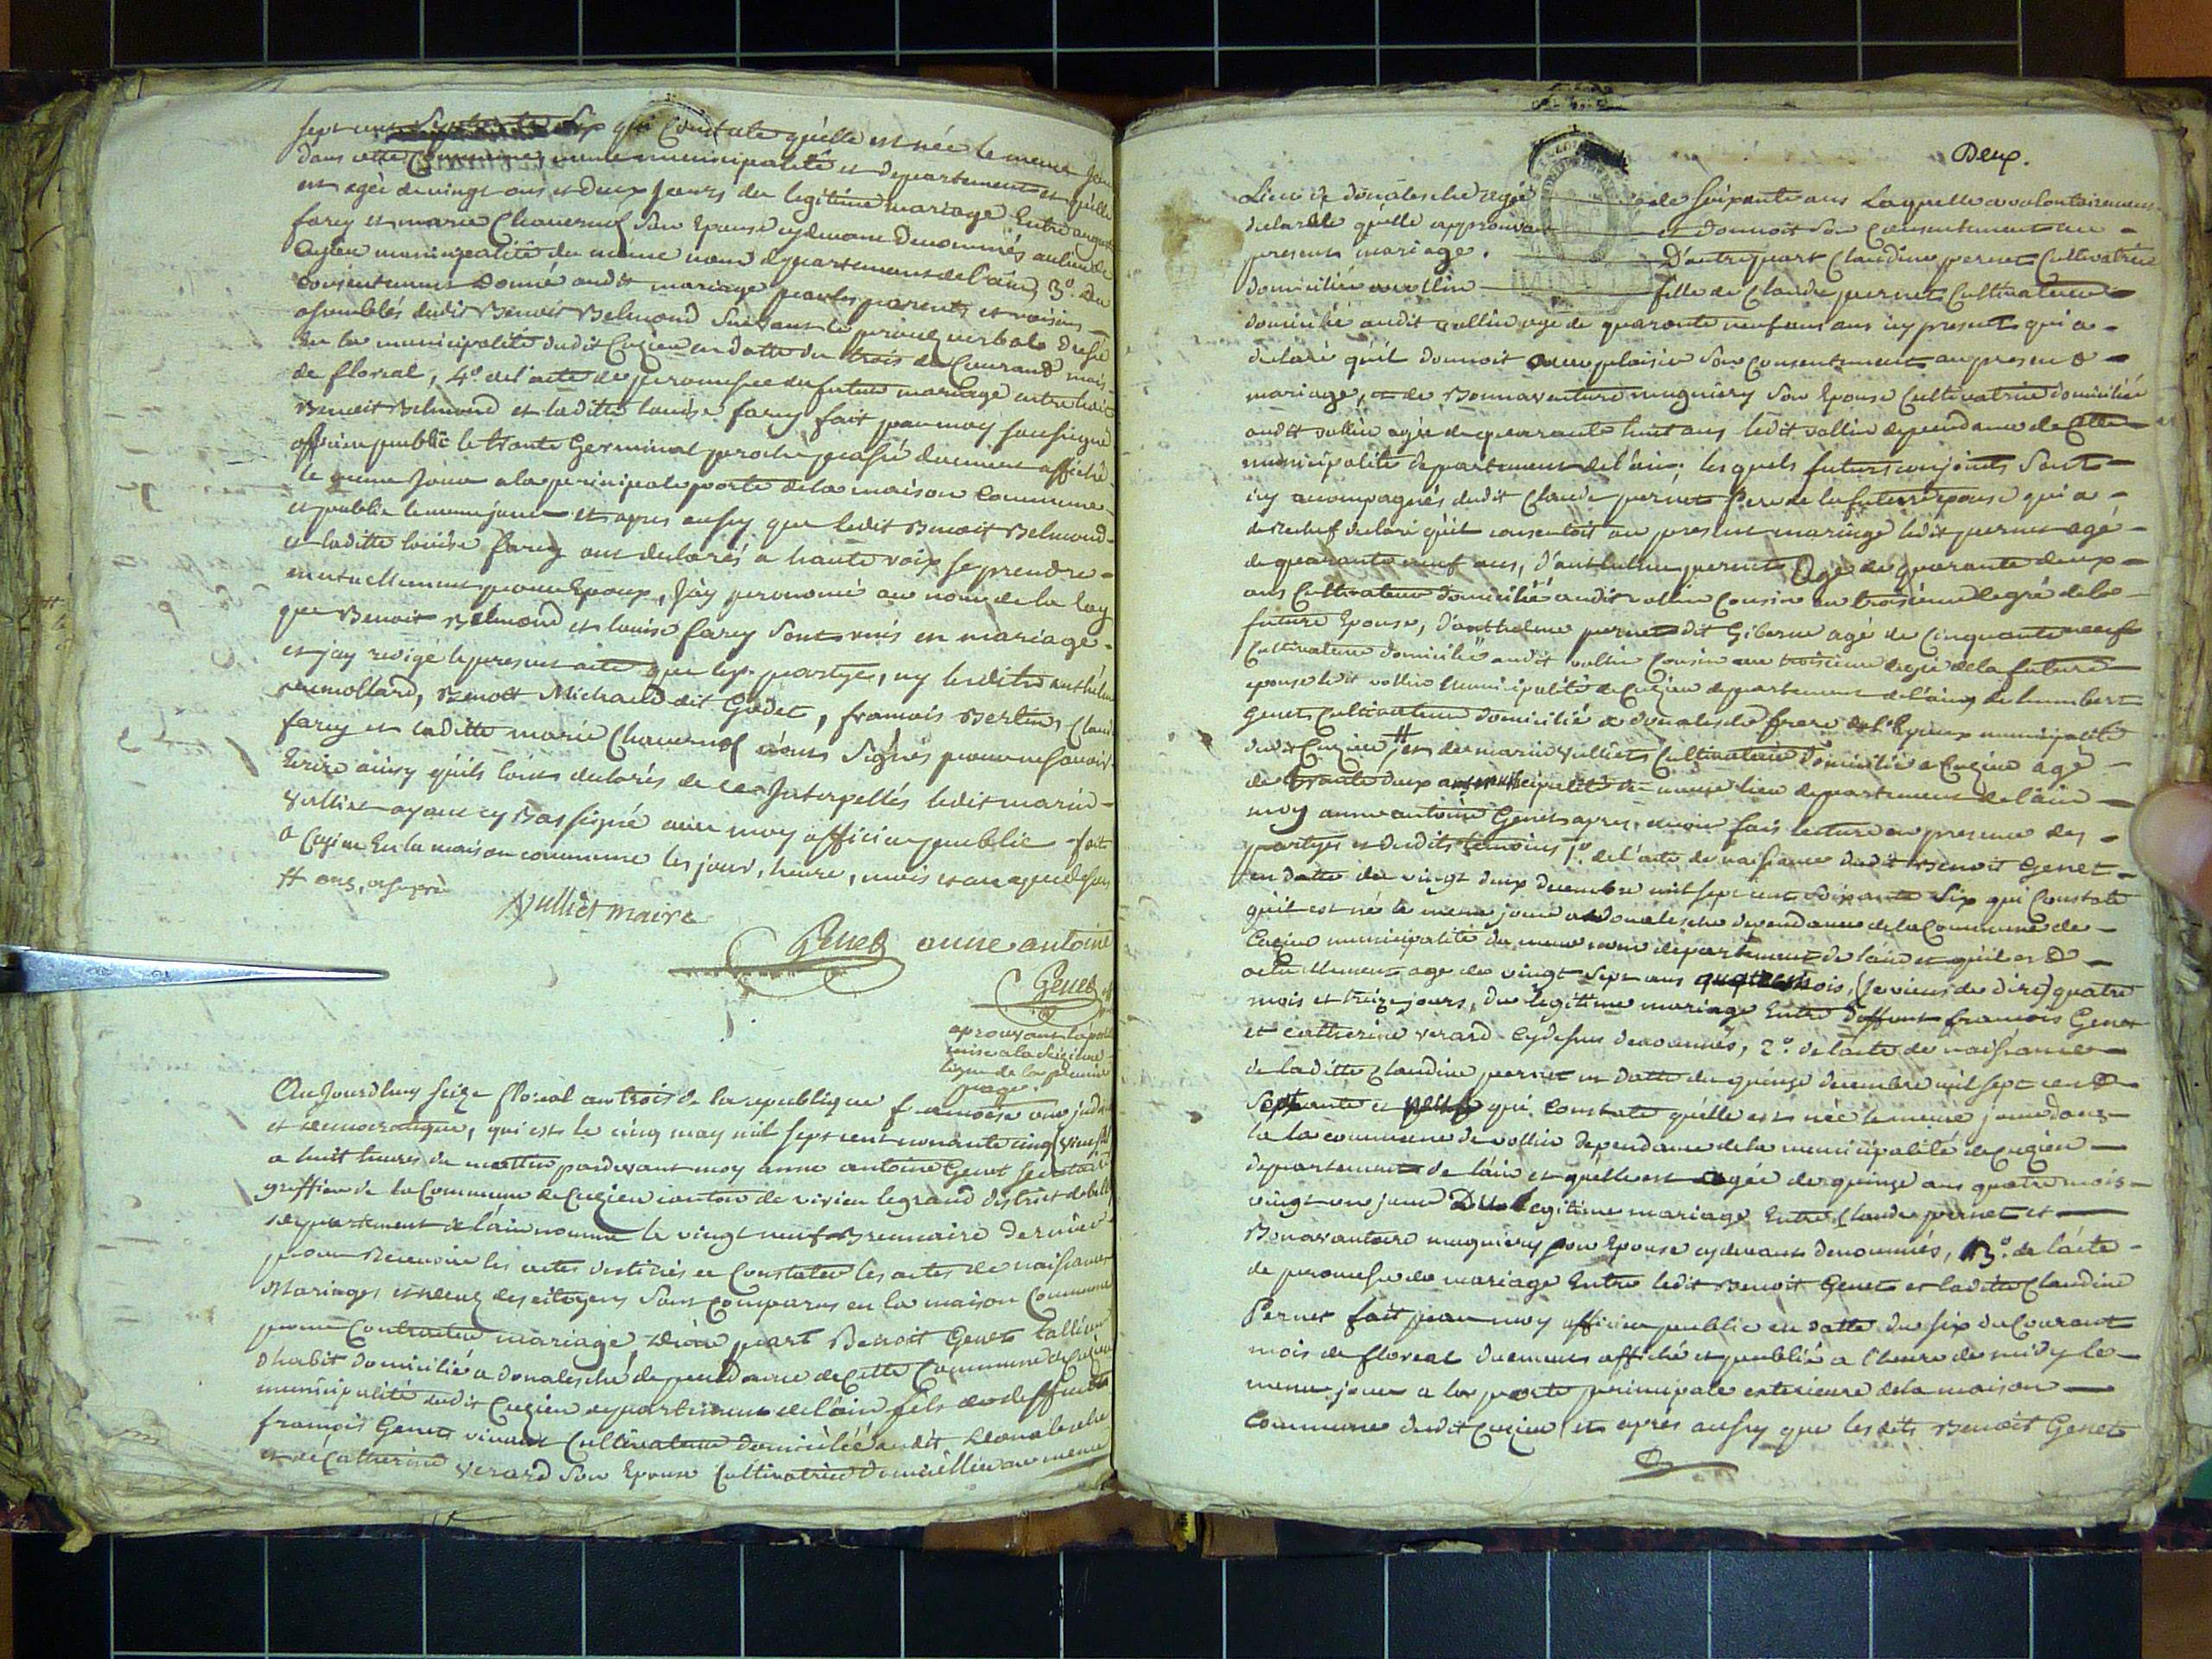 sept cent Septante Six qui Constate qu'elle est née le meme jour
dans cette Commune, meme municipalité et departement et qu'elle
est agée de vingt ans et Deux Jours du legitime mariage Entre august
farcy et marie Chauernof son Epouse cydevant Denommés au lieu de
Cuzieu municipalité du même nom departement de l'ain, 3°. du
Consentement donné audit mariage par les parents et voisins
assemblés dudit Benoit Belmond suivant le procez verbale dressé
en la municipalité dudit Cuzieu en datte du trois du Courant mois
de floreal, 4°. de l'acte de promesse du futur mariage entre ledit
Benoit Belmond et laditte louise farcy fait par moy soussigné
officier public le trente Germinal proche passé duement affiché
le meme Jour a la principale porte de la maison Commune
et publié le meme jour et apres aussy que ledit Benoit Belmond
et laditte louise farcy ont declarés a haute voix se prendre
mutuellement pour Epoux, J'ay prononcé au nom de la loy
que Benoit Belmond et louise farcy sont unis en mariage
et jay redigé le present acte que les partyes, ny lesdits anthelme
mollard, Benoit Michaud dit Godet, francois Berlin, Claude
farcy et laditte marie Chauernof n'ont signés pour ne savoir
Ecrire ainsy qu'ils l'ont declarés de ce Interpellés ledit marin
Vulliet ayant cy Bas signé avec moy officier public fait
a Cuzieu En la maison commune les jour, heure, mois et an que dessus
Vulliet maire
Genet anne antoine
Genet
aprouvant la
mise a la Seizieme
ligne de la premiere
page.
Aujourdhuy seize floreal an trois de la republique francoise une jndivisible
et democratique, qui est le cinq may mil sept cent nonante cinq vieux stil
a huit heures du mattin pardevant moy anne antoine Genet secretaire
greffier de la Commune de Cuzieu canton de virieu legrand district de belley
departement de l'ain nommé le vingt neuf Brumaire dernier
pour Recevoir les actes destinés a Constater les actes de naissances
Mariages et decez des citoyens sont comparus en la maison Commune
pour Contracter mariage, D'une part Benoit Genet tallieur
d'habit domicilié a donalesche dependance de Cette Commune de Cuzieu
municipalité dudit Cuzieu departement de l'ain fils de deffunt
francois Genet vivant Cultivateur domicilié audit donalesche
et de Catherine verard son Epouse Cultivatrice domicilliée au meme
Deux.
Lieu de donalesche agée de soixante ans Laquelle a volontairement
declarée qu'elle approuvoit et donnoit son consentement au
present mariage. D'autre part Claudine pernet Cultivatrice
domiciliée a vollin fille de Claude pernet Cultivateur
domicilié audit vollin agé de quarante neuf ans icy present qui a
declaré qu'il donnoit avec plaisir son Consentement au present
mariage, et de Bonnaventure mugniery son Epouse Cultivatrice domiciliée
audit vollin agée de quarante huit ans ledit vollin dependance de Cette
municipalité departement de l'ain; les quels futurs conjoints sont
icy acompagnés dudit Claude pernet Pere de la future epouse qui a
derechef declaré qu'il consentoit au present mariage ledit pernet agé
de quarante neuf ans, d'anthelme pernet Agé de quarante deux
ans Cultivateur domicilié audit vollin Cousin au troisieme degré de la
future Epouse, d'anthelme pernet dit Giberne agé de Cinquante neuf
Cultivateur domicilié audit vollin Cousin au troisieme degré de la future
epouse ledit vollin Municipalité de Cuzieu departement de l'ain, de humbert
Genet Cultivateur domicilié a donalesche frere de l'Epoux municipalité
dudit Cuzieu et de marin Vulliet Cultivateur Domicilié a Cuzieu agé
de trante deux ans municipalité du meme lieu departement de l'ain
moy anne antoine Genet apres avoir fait lecture en presence des
partyes et desdits temoins 1°. de l'acte de naissance dudit Benoit Genet
en datte du vingt deux decembre mil sept cent soixante six qui Constate
qu'il est né le meme jour a donalesche dependance de la Commune de
Cuzieu municipalité du meme nom departement de l'ain et qu'il est
actuellement agé de vingt sept ans mois, (je viens de dire) quatre
mois et treize jours, du legitime mariage Entre deffunt francois Genet
et catherine verard cy dessus denommés, 2°. de l'acte de naissance
de laditte claudine pernet en datte du quinze decembre mil sept cent
Septante et neuf qui constate qu'elle est née le meme jour dans
la la commune de vollin dependance de la municipalité de Cuzieu
departement de l'ain et qu'elle est agée de quinze ans quatre mois
vingt un jour Du legitime mariage Entre Claude pernet et
Bonavanture mugniery son Epouse cydevant denommés, 3°. de l'acte
de promesse de mariage Entre ledit Benoit Genet et laditte Claudine
Pernet fait par moy officier public en datte du six du Courant
mois de floreal duement affiché et publié a l'heure de midy le
meme jour a la porte principale exterieure de la maison
Commune dudit Cuzieu et aprés aussy que lesdits Benoit Genet